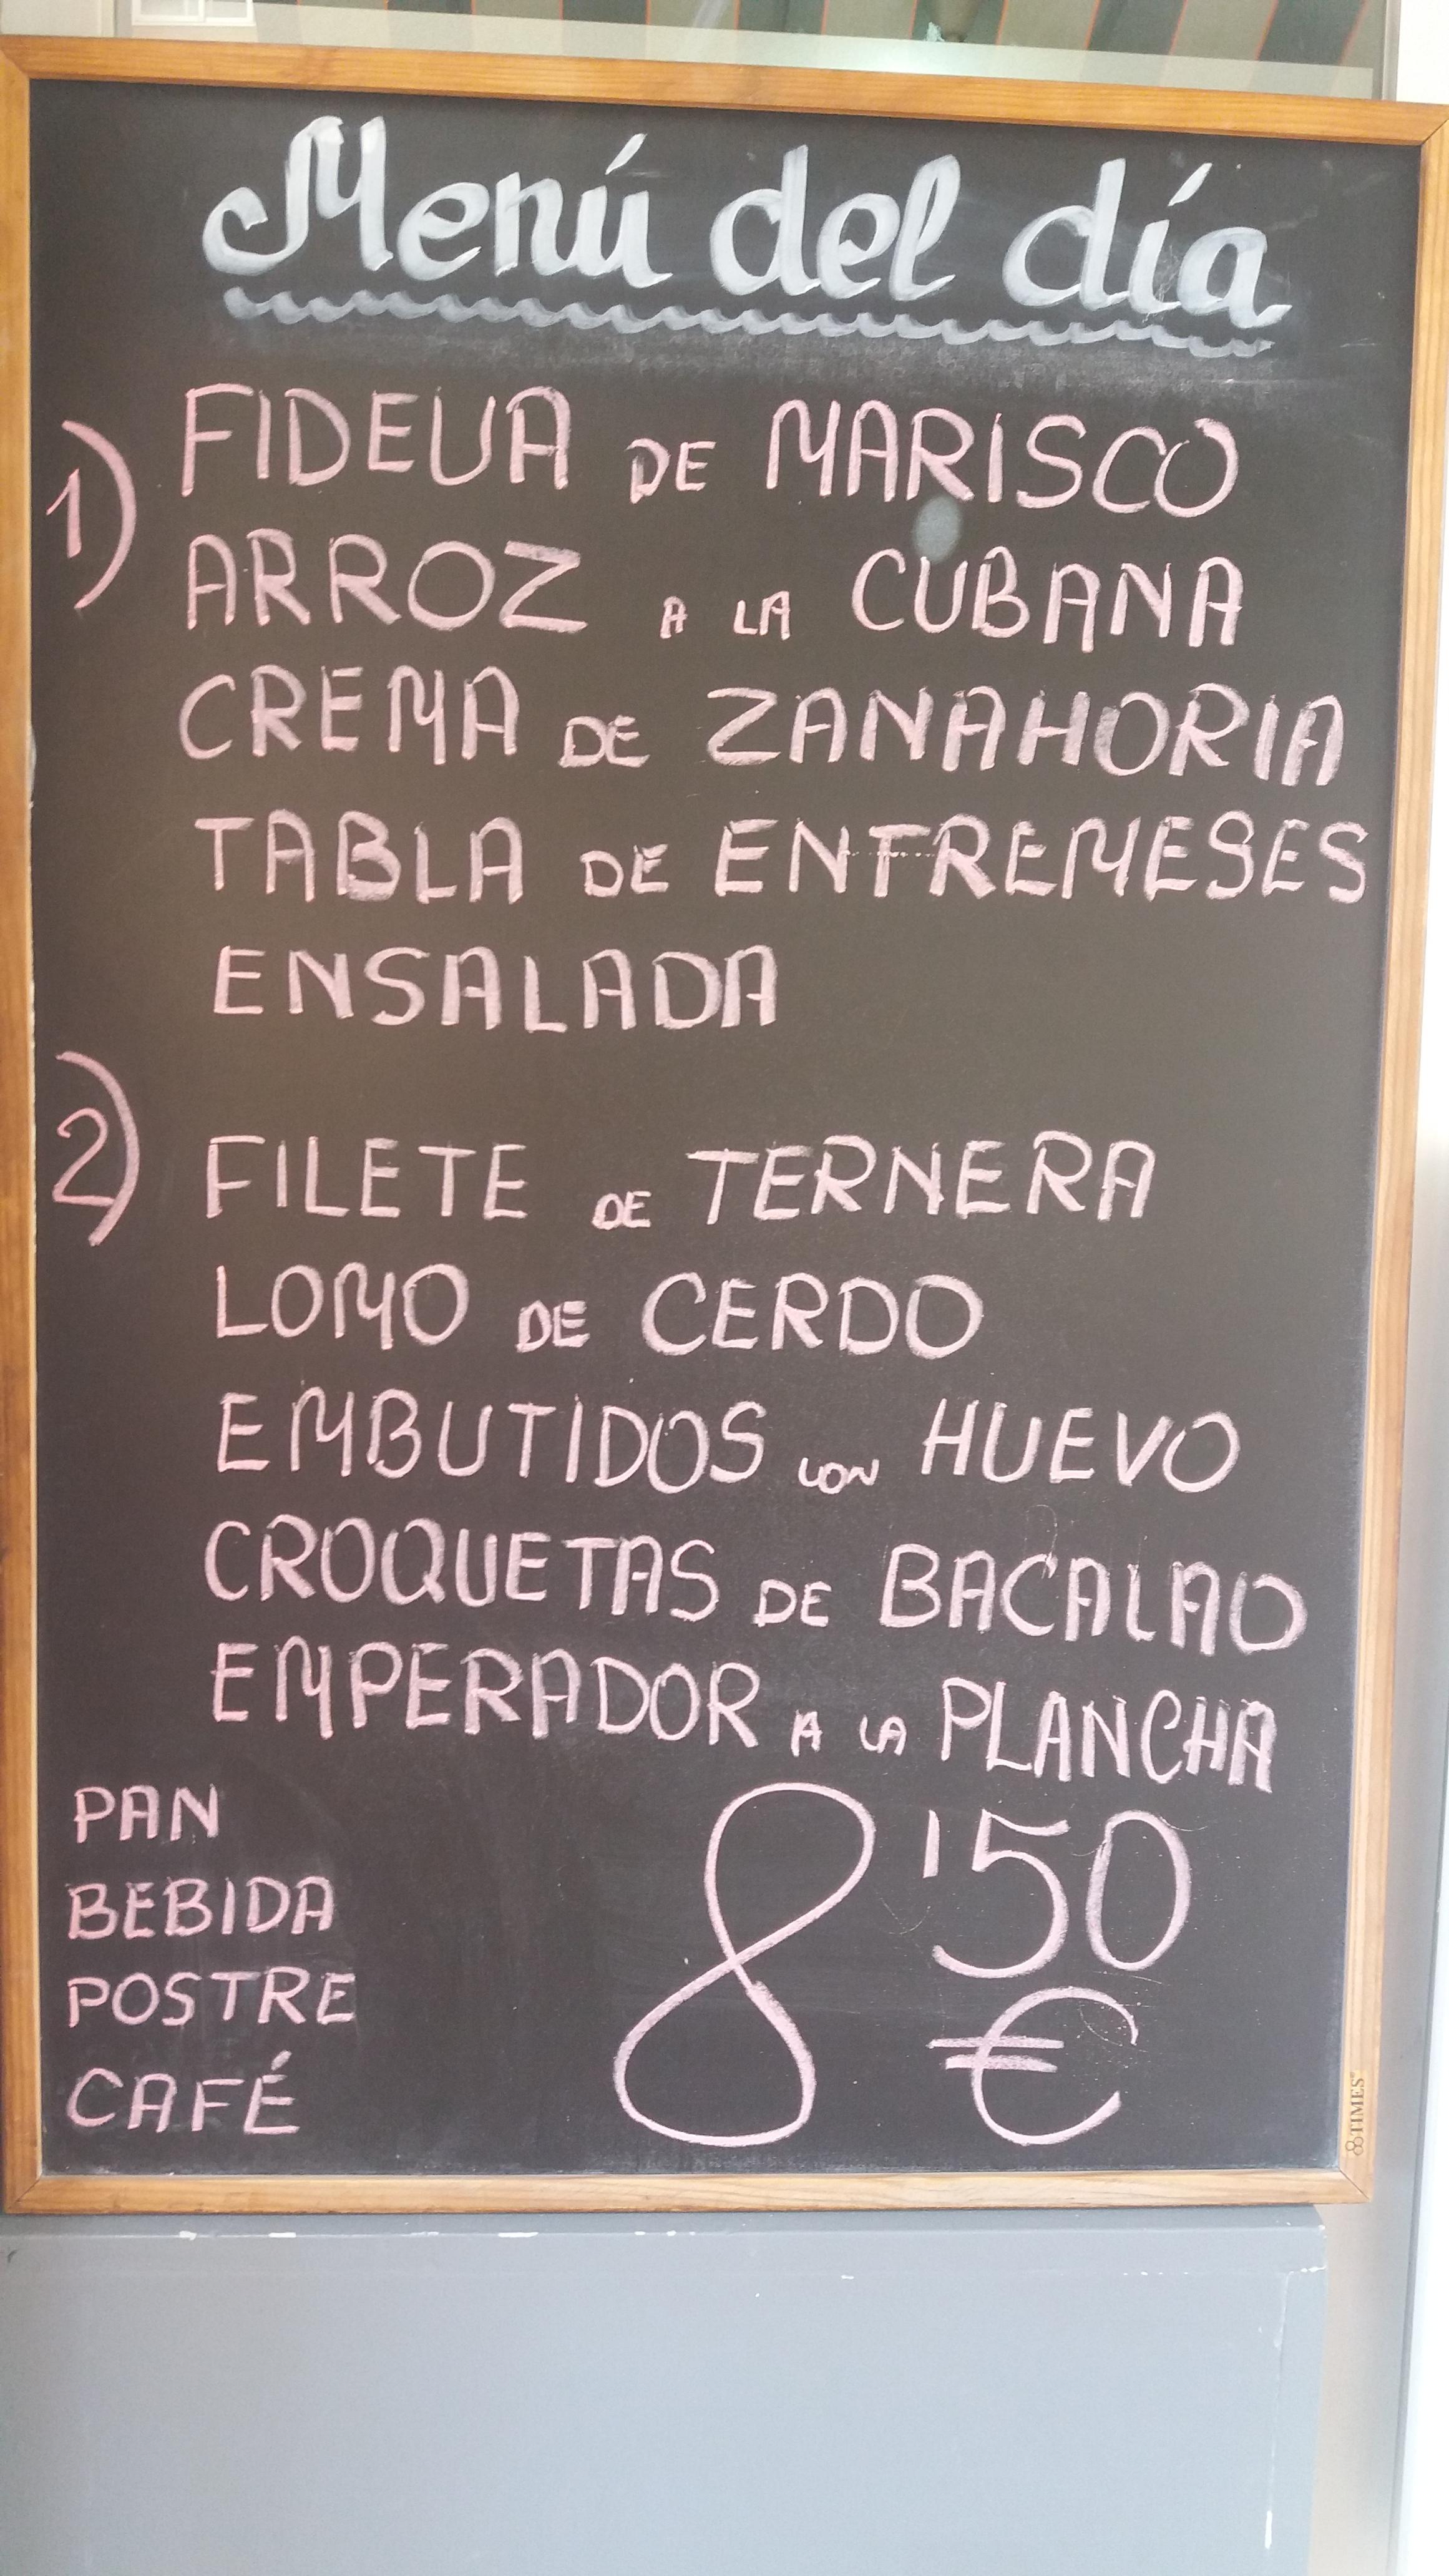 Menú del día
1) FIDEUA DE MARISCO
ARROZ A LA CUBANA
CREMA DE ZANAHORIA
TABLA DE ENTREMESES
ENSALADA
2) FILETE DE TERNERA
LOMO DE CERDO
EMBUTIDOS CON HUEVO
CROQUETAS DE BACALAO
EMPERADOR A LA PLANCHA
PAN
BEBIDA
POSTRE
CAFÉ
8'50
€
TIMES